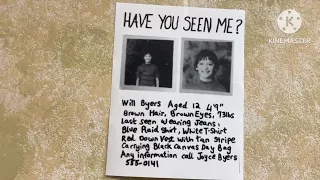 HAVE YOU SEEN ME?
KINEMASTER
Will Byers Aged 12 4'9"
Brown Hair, Brown Eyes, 73lbs
Last seen wearing Jeans,
Blue Plaid Shirt, White T-Shirt
Red Down Vest with Tan Stripe
Carrying Black Canvas Day Bag
Any information call Joyce Byers
555-0141